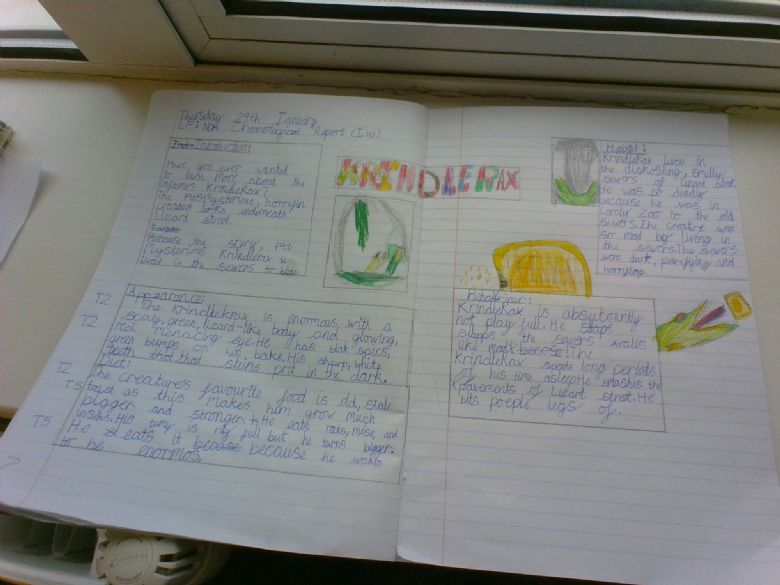 Thursday 29th January
LF: Non Chronological Report (IW)
Introduction:
Have you ever wanted
to learn more about the
infamos Krindlerax?
The mostMysterious, horryfin
Creature lurks underneath
Lizard street.
Because the scary, 
Mysterious Krindlerax is
lived in the sewers to hide.
T2
Appearance:
The Krindlekrax is enormous with a
T2
scaly, green, lizard-like body and glowing,
red menacing eye. He has blak spics,
green bumps on his bake. His sharp, white
teeth that that shins in the dark.
T2
Diet:
The creature's favourite food is old, stale
T5
toast as this makes him grow much
bigger and stronger. He eats rats, mise, and
insects. His tumy is full but he turns bigger.
T5
He eats it because because he wants
to be enormos.
KRINDLERAX
Habitat:
Krindlekrax lives in
the diskosting, smelly
sewers of Lizard street.
He was so deadly
because he was in
Lovely Zoo to the old
sewers. The creature was
so mad by living in
the sewers. The sewers
was dark, petrifying and
horrying.
Behaviour:
Krindlekrax is absylounly
not play full. He slaps
slapps the sewers walls
like The
Krindlekrax spends long periods
of his time asleep. He smashis the
pavements of Lizard street. He
bits poeple legs of.